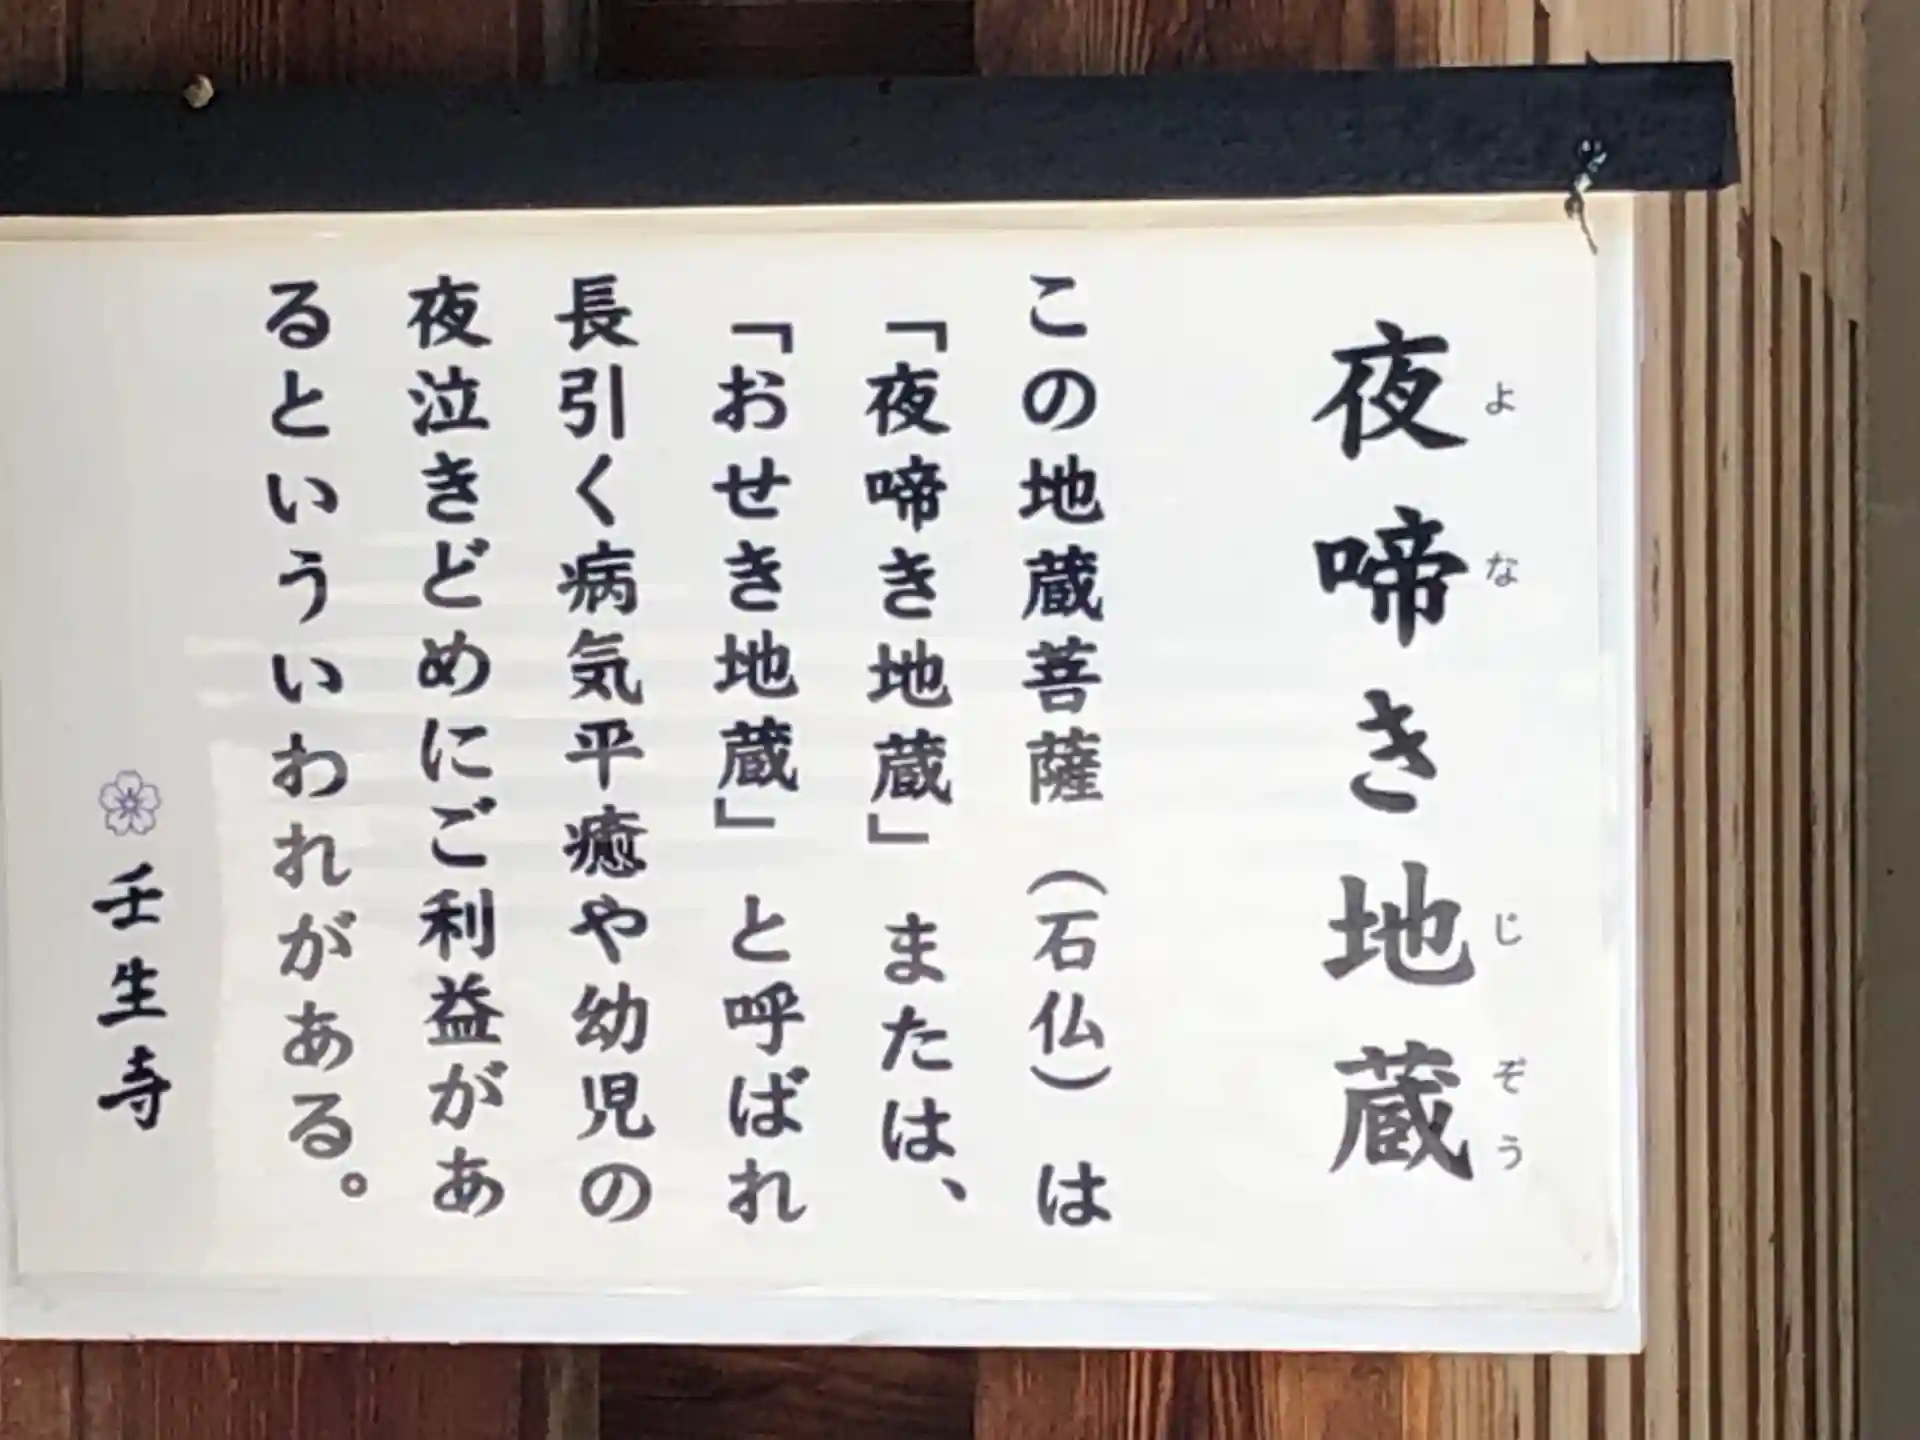 夜啼き地蔵
よ な じ ぞう
この地蔵菩薩(石仏)は
「夜啼き地蔵」または、
「おせき地蔵」と呼ばれ
長引く病気平癒や幼児の
夜泣きどめにご利益があ
るといういわれがある。
壬生寺